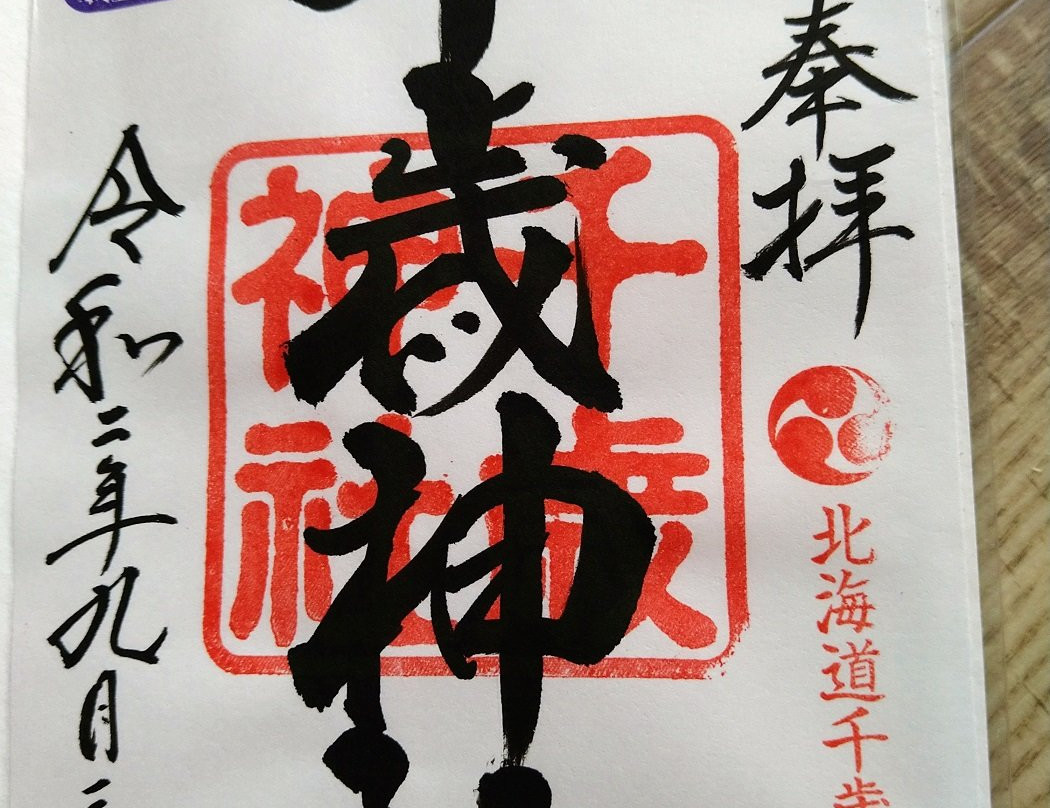 奉拝
北海道千歳
千歳神社
歳神
令和二年九月